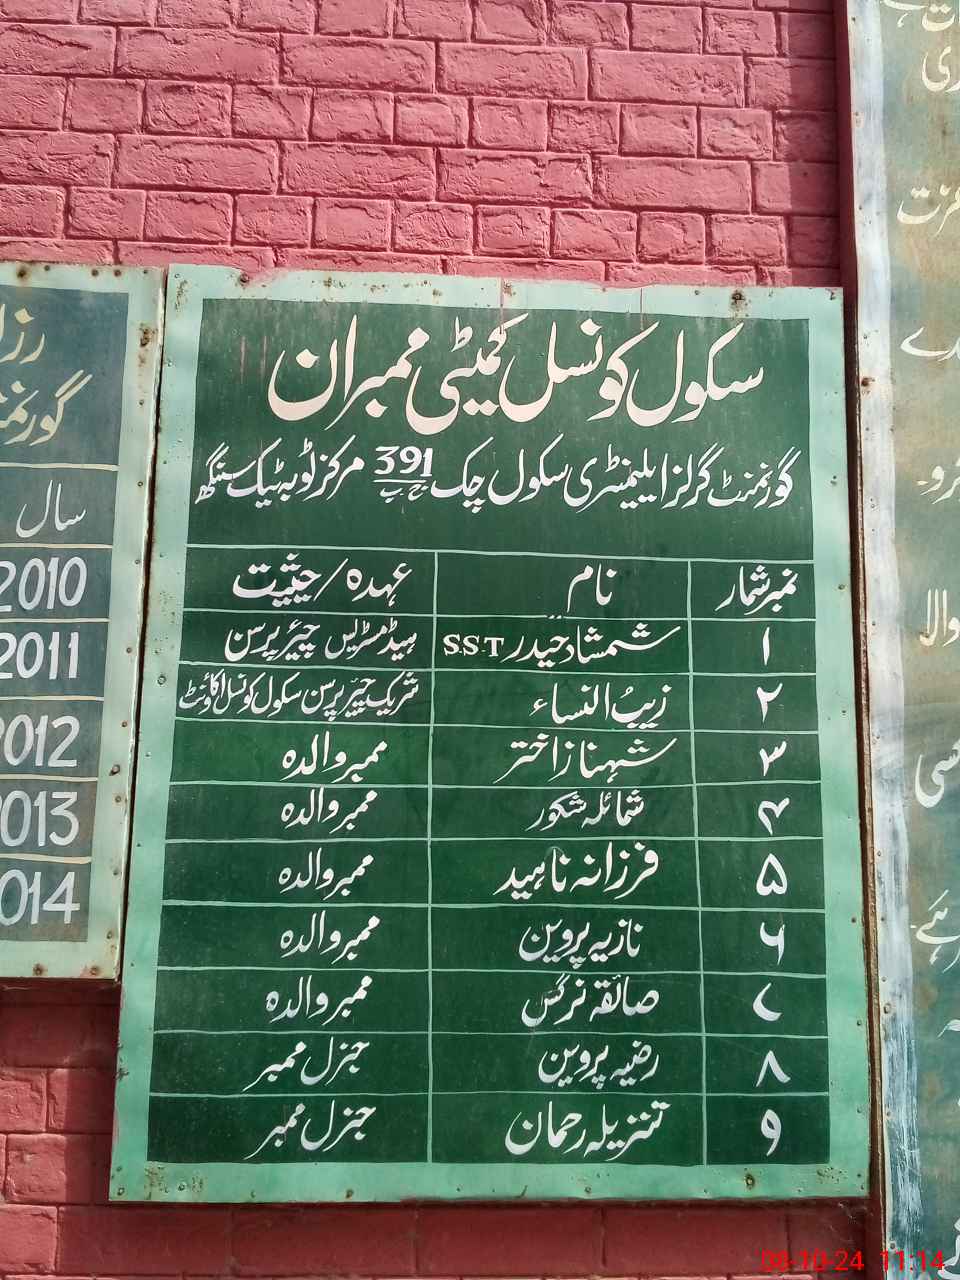 سکول کونسل کمیٹی ممبران
گورنمنٹ گرلز ایلیمنٹری سکول چک 391 ج ب مرکز ٹوبہ ٹیک سنگھ
نمبر شمار نام عہدہ / حیثیت
۱ شمشاد حیدر S.S.T ہیڈ مسٹریس چیئر پرسن
۲ زیبُ النساء شریک چیئر پرسن سکول کونسل اکاؤنٹ
۳ شہناز اختر ممبر والدہ
۴ شمائلہ شکور ممبر والدہ
۵ فرزانہ ناہید ممبر والدہ
۶ نازیہ پروین ممبر والدہ
۷ صائقہ نرگس ممبر والدہ
۸ رضیہ پروین جنرل ممبر
۹ تنزیلہ رحمان جنرل ممبر
سال
2010
2011
2012
2013
2014
عزت
والا
08-10-24 11:14